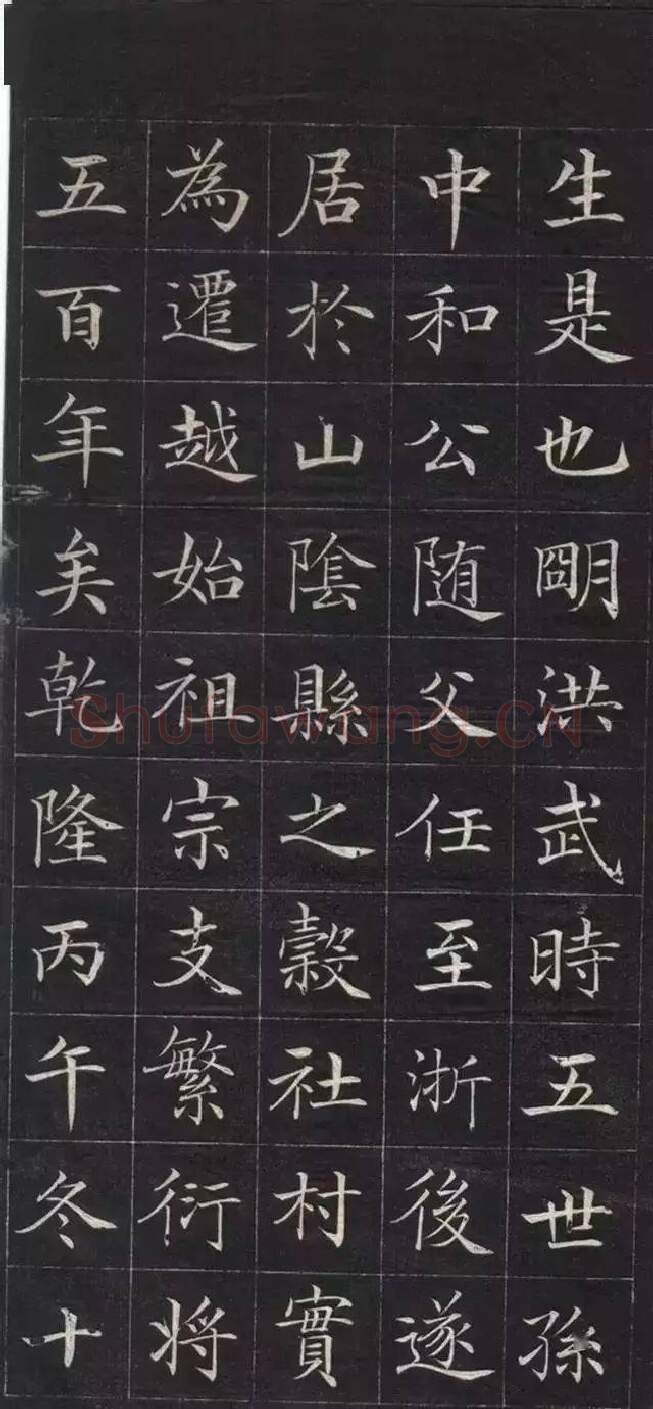 生是也朙洪武時五世孫
中和公随父任至浙後遂
居於山陰縣之穀社村實
為遷越始祖宗支繁衍将
五百年矣乾隆丙午冬十
Shufawang.CN